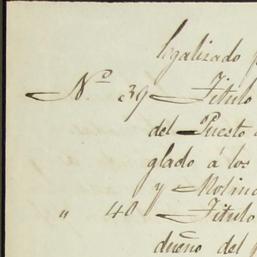 legalizado p
Nº. 39 Titulo
del Puesto
glado á los
y Molino
" 40 Titulo
dueño del p